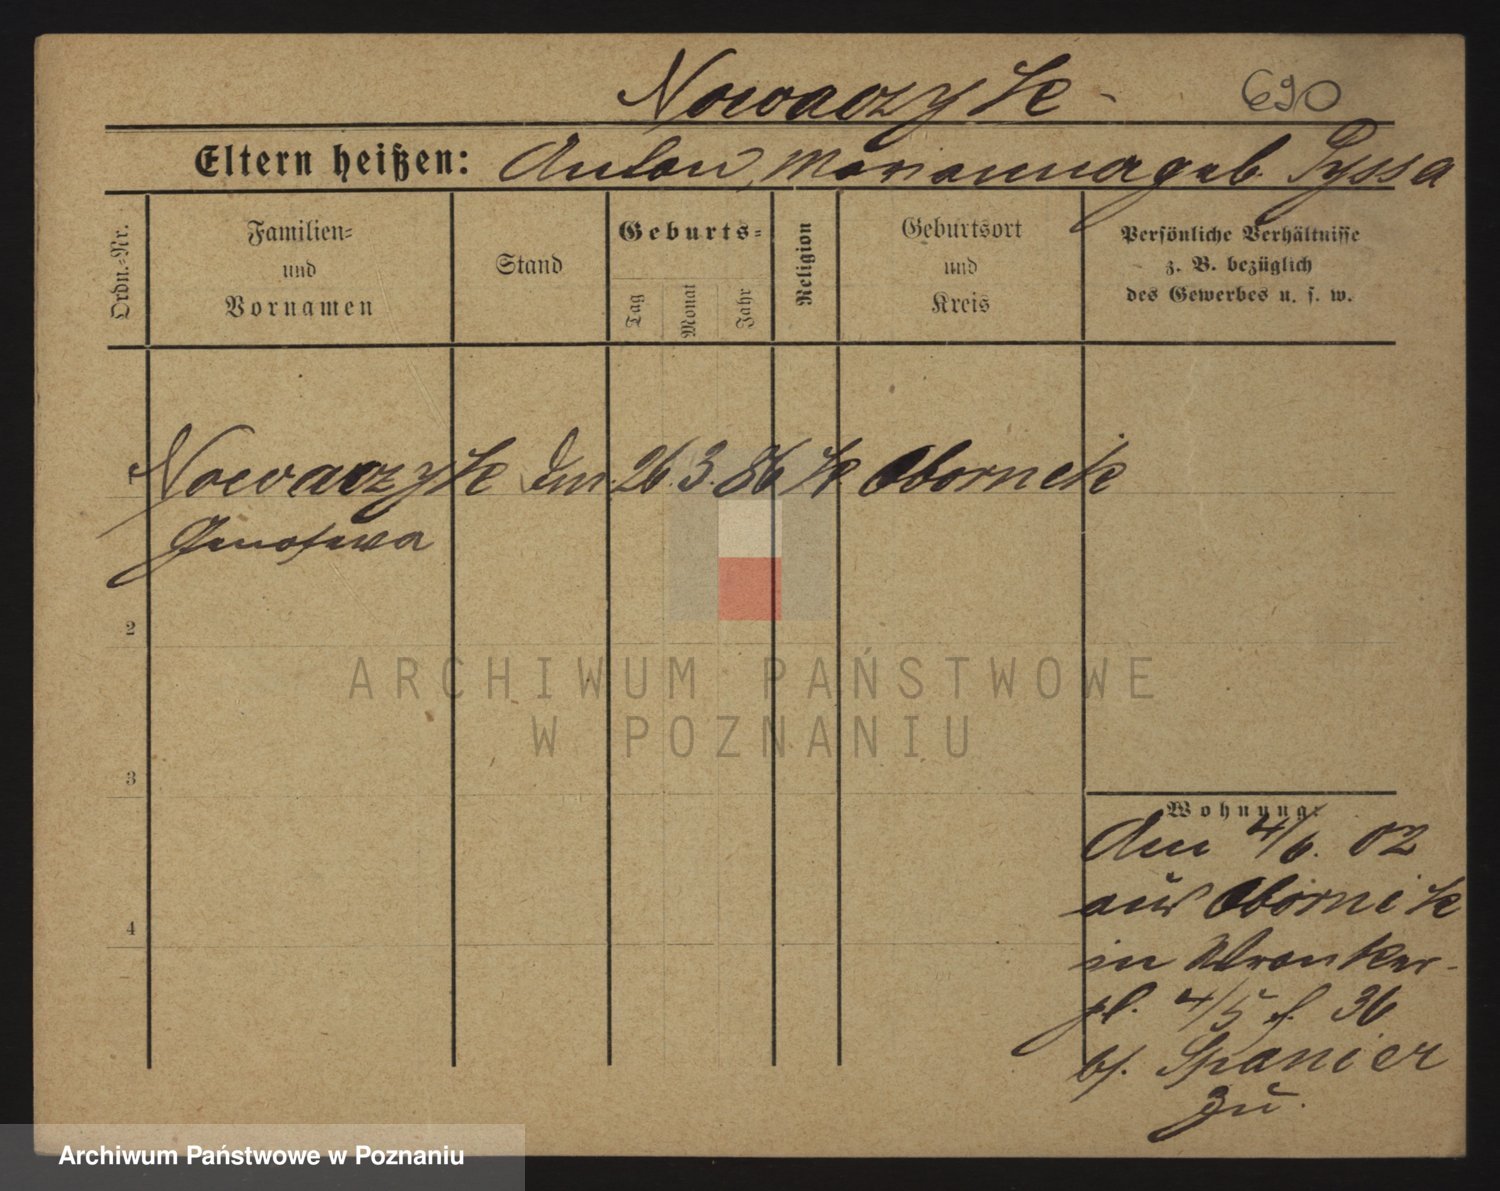 Nowaczyk - 690
Eltern heißen: Anton, Marianna geb. Pyssa
Ordn.=Nr.
Familien=
und
Vornamen
Stand
Geburts=
Tag
Monat
Jahr
Religion
Geburtsort
und
Kreis
Persönliche Verhältnisse
z. B. bezüglich
des Gewerbes u. s. w.
1 Nowaczyk 26. 3. 86 k Obornik
Genofewa
2
3
4
Wohnung:
Am 4/6. 02
aus Obornik
in Wronker-
pl. 4/5 f. 36
bf. Spanier
zu.
ARCHIWUM PAŃSTWOWE
W POZNANIU
Archiwum Państwowe w Poznaniu